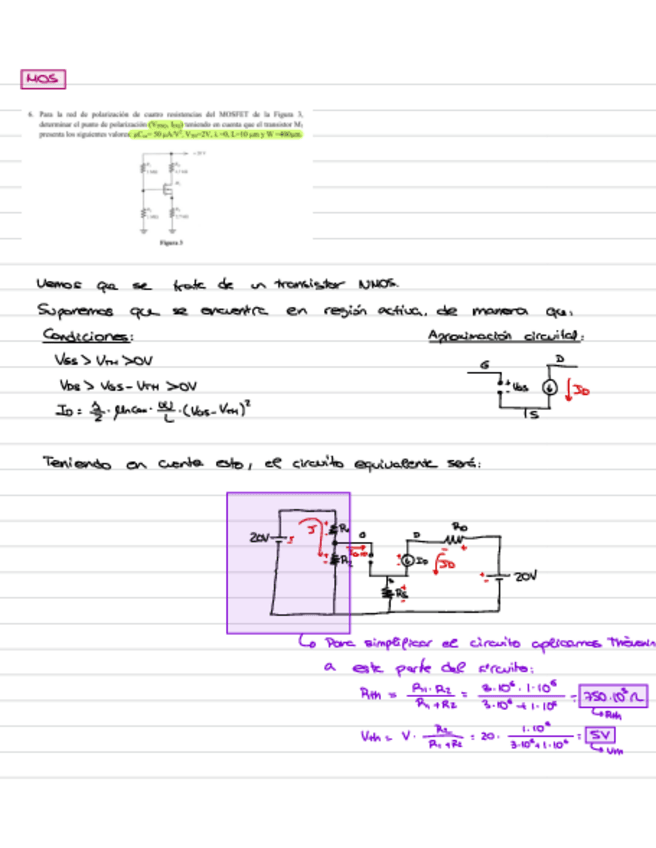 MOS
6. Para la red de polarización de cuatro resistencias del MOSFET de la Figura 3,
determinar el punto de polarización (VDSQ, IDQ) teniendo en cuenta que el transistor M1
presenta los siguientes valores: μCox= 50 μA/V², VTO=2V, λ =0, L=10 μm y W =400μm.
Figura 3
Vemos que se trata de un transistor NMOS.
Suponemos que se encuentra en región activa, de manera que:
Condiciones:
Aproximación circuital:
VGS > VTH > 0V
VDS > VGS - VTH > 0V
ID = 1/2 · μnCox · W/L · (VGS - VTH)²
G
D
+ VGS -
ID
S
Teniendo en cuenta esto, el circuito equivalente será:
20V
I
R1
R2
G
D
RD
ID
ID
S
RS
20V
Para simplificar el circuito aplicamos Thévenin
a esta parte del circuito:
Rth = R1 · R2 / R1 + R2 = 3·10⁶ · 1·10⁶ / 3·10⁶ + 1·10⁶ = 750·10³ Ω
Rth
Vth = V · R2 / R1 + R2 = 20 · 1·10⁶ / 3·10⁶ + 1·10⁶ = 5V
Vth